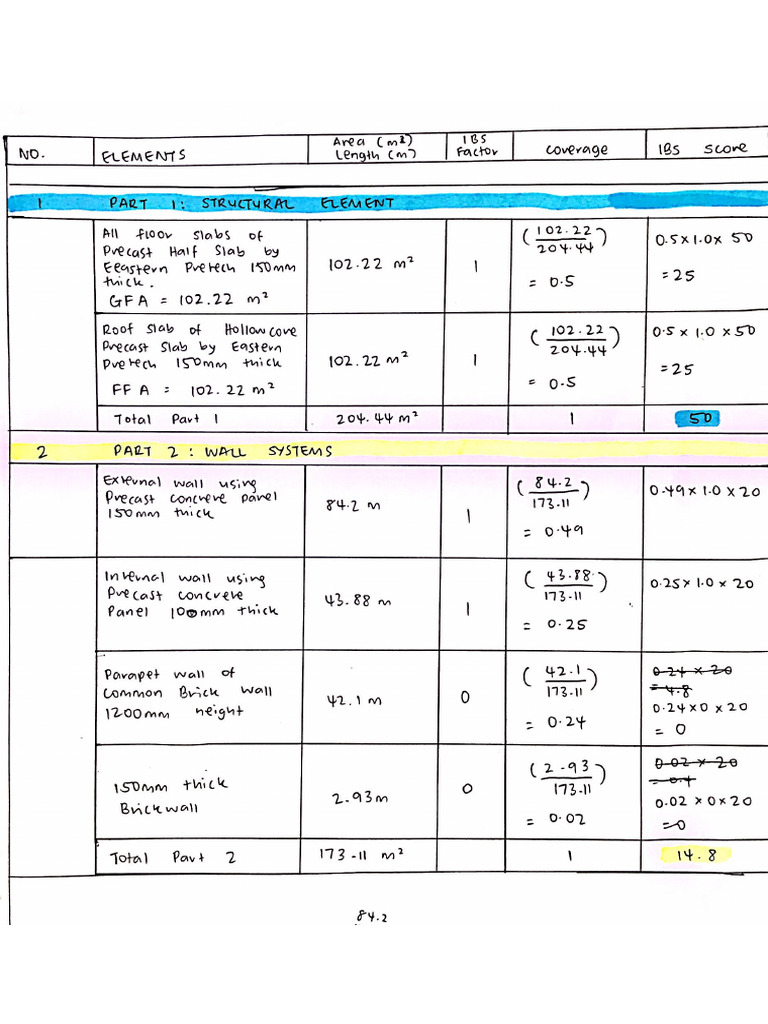 NO.
ELEMENTS
Area (m²)
Length (m)
IBS
Factor
Coverage
IBS Score
1 PART 1: STRUCTURAL ELEMENT
All floor slabs of
Precast Half Slab by
Eeastern Pretech 150mm
thick.
GFA = 102.22 m²
102.22 m²
1
(102.22/204.44)
= 0.5
0.5 x 1.0 x 50
= 25
Roof slab of Hollowcore
Precast Slab by Eastern
Pretech 150mm thick
FFA = 102.22 m²
102.22 m²
1
(102.22/204.44)
= 0.5
0.5 x 1.0 x 50
= 25
Total Part 1
204.44 m²
1
50
2 PART 2: WALL SYSTEMS
External wall using
Precast concrete panel
150mm thick
84.2 m
1
(84.2/173.11)
= 0.49
0.49 x 1.0 x 20
Internal wall using
Precast concrete
Panel 100mm thick
43.88 m
1
(43.88/173.11)
= 0.25
0.25 x 1.0 x 20
Parapet wall of
Common Brick wall
1200mm height
42.1 m
0
(42.1/173.11)
= 0.24
0.24 x 20
= 4.8
0.24 x 0 x 20
= 0
150mm thick
Brickwall
2.93 m
0
(2.93/173.11)
= 0.02
0.02 x 20
= 0.4
0.02 x 0 x 20
= 0
Total Part 2
173.11 m²
1
14.8
84.2